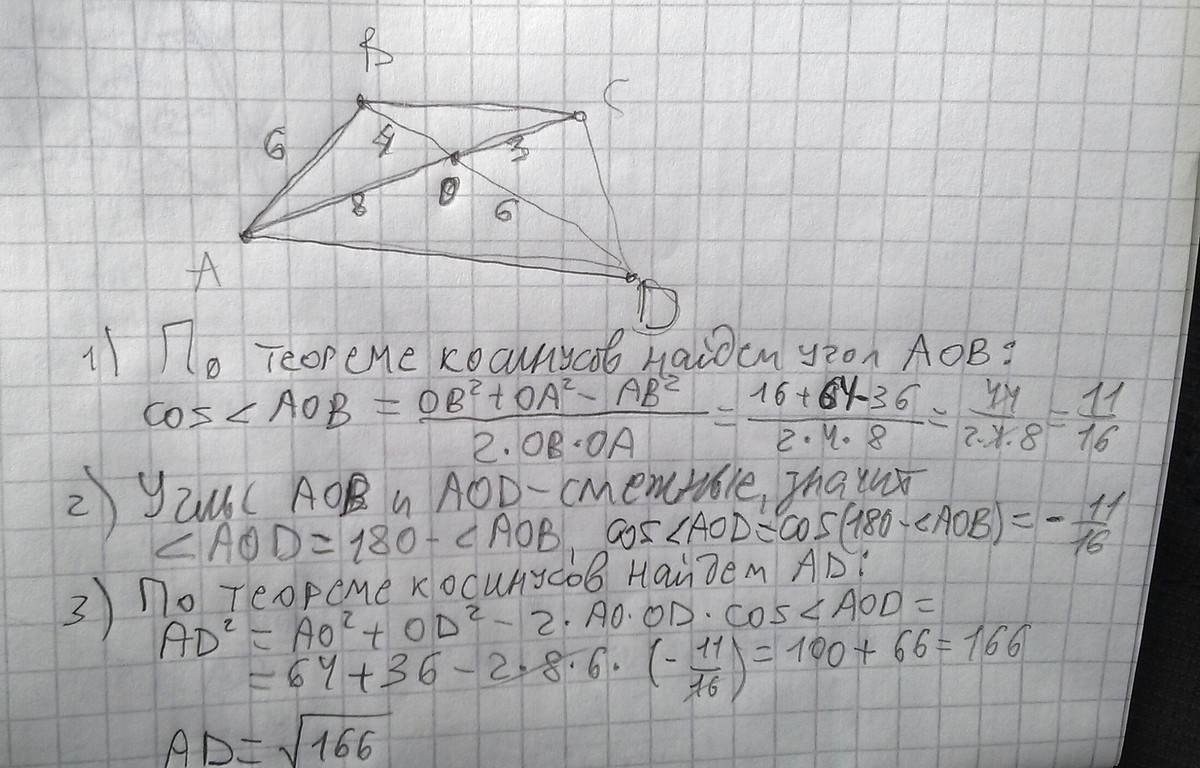 B
C
6
4
3
O
8
6
A
D
1) По теореме косинусов найдем угол AOB:
cos < AOB = OB² + OA² - AB² / 2·OB·OA = 16 + 64 - 36 / 2·4·8 = 44 / 2·4·8 = 11/16
2) Углы AOB и AOD - смежные, значит
< AOD = 180 - < AOB, cos < AOD = cos(180 - < AOB) = - 11/16
3) По теореме косинусов найдем AD:
AD² = AO² + OD² - 2·AO·OD·cos < AOD =
= 64 + 36 - 2·8·6·(- 11/16) = 100 + 66 = 166
AD = √166